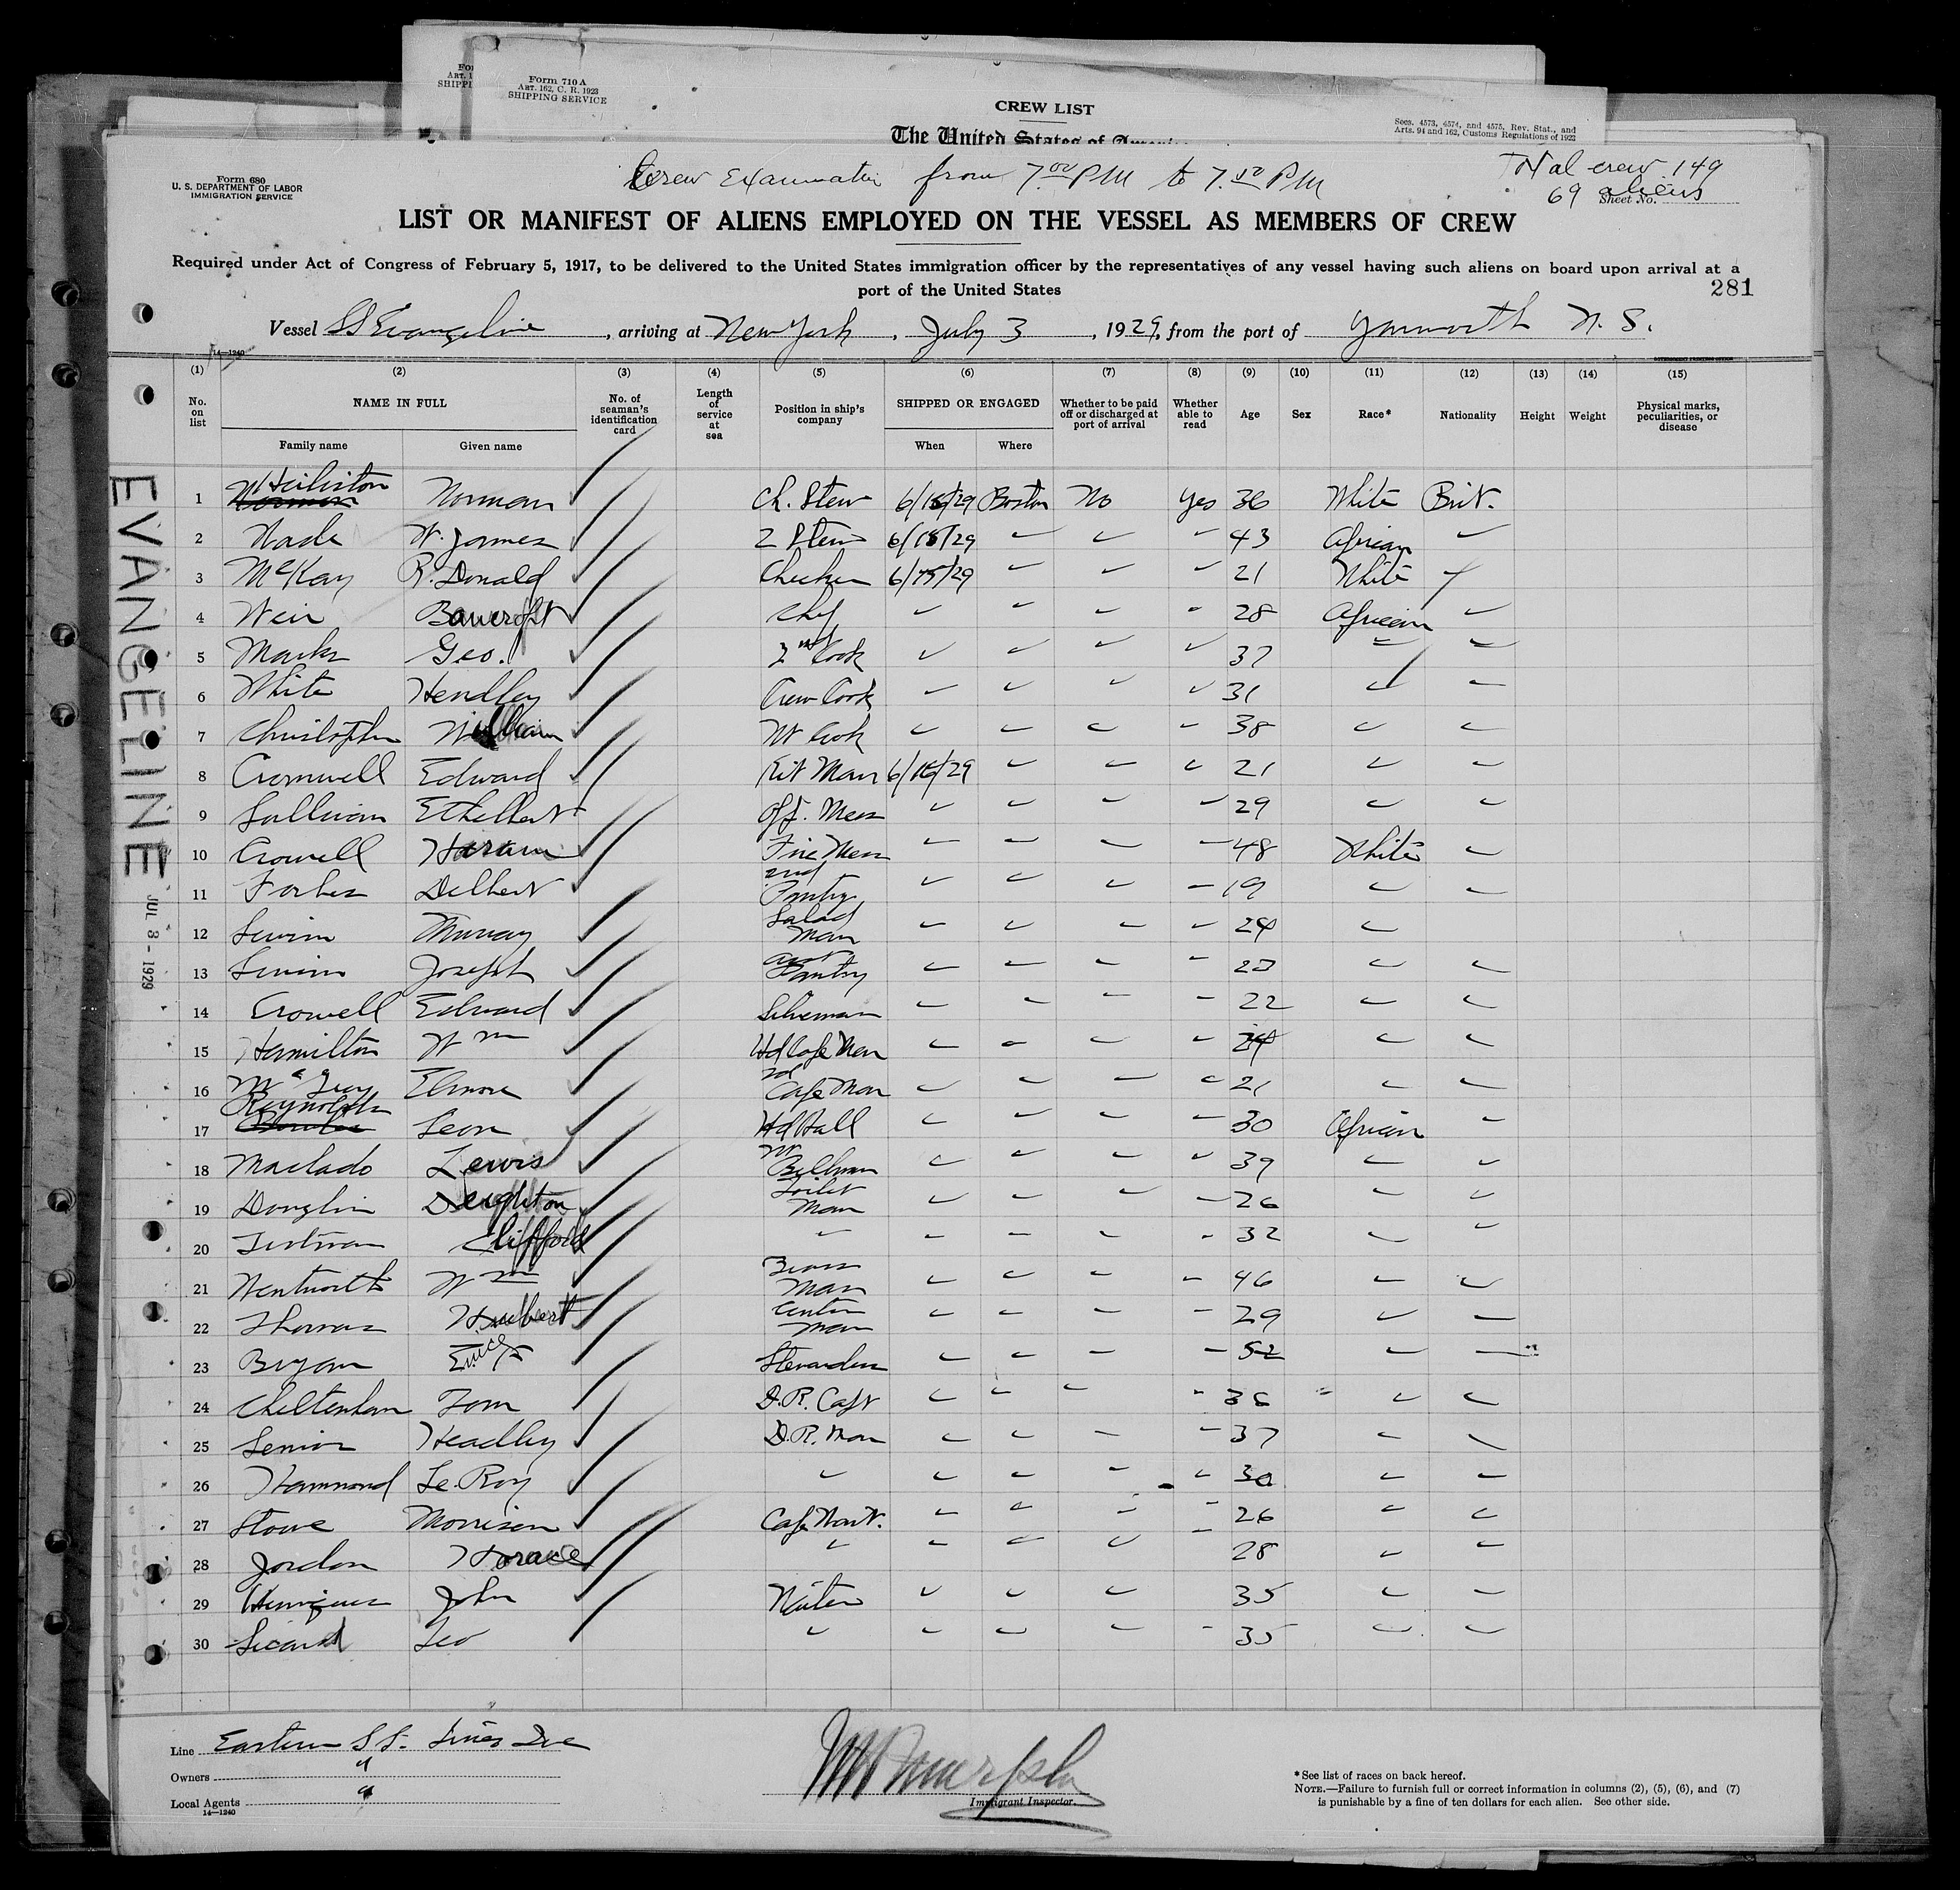 Form 710 A
ART. 162, C. R. 1923
SHIPPING SERVICE
CREW LIST
The United States of America
Secs. 4573, 4574, and 4575, Rev. Stat., and
Arts. 94 and 162, Customs Regulations of 1923
Form 680
U. S. DEPARTMENT OF LABOR
IMMIGRATION SERVICE
Crew Examination from 7.00 PM to PM
Total crew 149
69 aliens
Sheet No.
LIST OR MANIFEST OF ALIENS EMPLOYED ON THE VESSEL AS MEMBERS OF CREW
Required under Act of Congress of February 5, 1917, to be delivered to the United States immigration officer by the representatives of any vessel having such aliens on board upon arrival at a
port of the United States
281
Vessel SS Evangeline, arriving at New York, July 3, 1929, from the port of Yarmouth N. S.
14—1240
GOVERNMENT PRINTING OFFICE
(1) (2) (3) (4) (5) (6) (7) (8) (9) (10) (11) (12) (13) (14) (15)
No. on list NAME IN FULL No. of seaman's identification card Length of service at sea Position in ship's company SHIPPED OR ENGAGED Whether to be paid off or discharged at port of arrival Whether able to read Age Sex Race* Nationality Height Weight Physical marks, peculiarities, or disease
Family name Given name When Where
EVANGELINE
JUL 3 - 1929
1 Norman Ch. Stew 6/15/29 Boston No Yes 36 White Brit.
2 Wade W. James 2 Stew 6/15/29 43 African
3 McKay R. Donald Checker 6/15/29 21 White
4 Weir Bancroft Chef 28 African
5 Marks Geo. 2nd Cook 37
6 White Hendley Crew Cook 31
7 Christopher William Nt Cook 38
8 Cromwell Edward Kit Man 6/16/29 21
9 Sullivan Ethelbert Off. Mess 29
10 Crowell Hiram Fire Mess 48 White
11 Forbes Delbert 2nd Pantry 19
12 Swim Murray Salad Man 24
13 Swim Joseph Asst Pantry 23
14 Crowell Edward Silverman 22
15 Hamilton Wm Hd Cafe Man 24
16 McGray Elmore 2d Cafe Man 21
17 Reynolds Leon Hd Hall 30 African
18 Machado Lewis Nt Bellman 39
19 Douglin Deighton Toilet Man 26
20 Clifford 32
21 Wentworth Wm Man 46
22 Thomas Hubert Man 29
23 Bryan Stewardess 52
24 Cheltenham Tom D. R. Capt 36
25 Senior Headley D. R. Man 37
26 Hammond Le Roy 30
27 Stowe Morrison Cafe Wait. 26
28 Jordon Horace 28
29 Henriques John Waiter 35
30 Sicard Leo 35
Line Eastern S. S. Lines Inc
Owners "
Local Agents "
14—1240
Immigrant Inspector.
* See list of races on back hereof.
NOTE.—Failure to furnish full or correct information in columns (2), (5), (6), and (7)
is punishable by a fine of ten dollars for each alien. See other side.